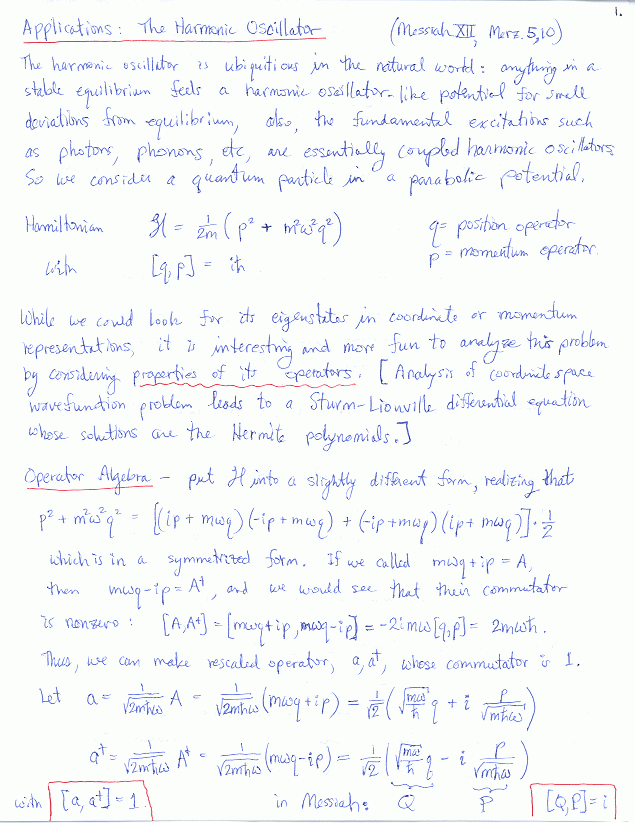 1.
Applications: The Harmonic Oscillator (Messiah XII, Merz. 5,10)
The harmonic oscillator is ubiquitous in the natural world: anything in a
stable equilibrium feels a harmonic oscillator-like potential for small
deviations from equilibrium, also, the fundamental excitations such
as photons, phonons, etc, are essentially coupled harmonic oscillators.
So we consider a quantum particle in a parabolic potential.
Hamiltonian ℋ = 1/2m (p² + m²ω²q²) q = position operator
with [q,p] = iħ p = momentum operator.
While we could look for its eigenstates in coordinate or momentum
representations, it is interesting and more fun to analyze this problem
by considering properties of its operators. [Analysis of coordinate space
wavefunction problem leads to a Sturm-Lionville differential equation
whose solutions are the Hermite polynomials.]
Operator Algebra – put ℋ into a slightly different form, realizing that
p² + m²ω²q² = [(ip + mωq)(-ip + mωq) + (-ip + mωq)(ip + mωq)]·1/2
which is in a symmetrized form. If we called mωq + ip = A,
then mωq - ip = A†, and we would see that their commutator
is nonzero: [A,A†] = [mωq + ip, mωq - ip] = -2imω[q,p] = 2mωħ.
Thus, we can make rescaled operator, a, a†, whose commutator is 1.
Let a = 1/√2mħω A = 1/√2mħω (mωq + ip) = 1/√2 (√mω/ħ q + i p/√mħω)
a† = 1/√2mħω A† = 1/√2mħω (mωq - ip) = 1/√2 (√mω/ħ q - i p/√mħω)
with [a, a†] = 1 in Messiah: Q P [Q,P] = i